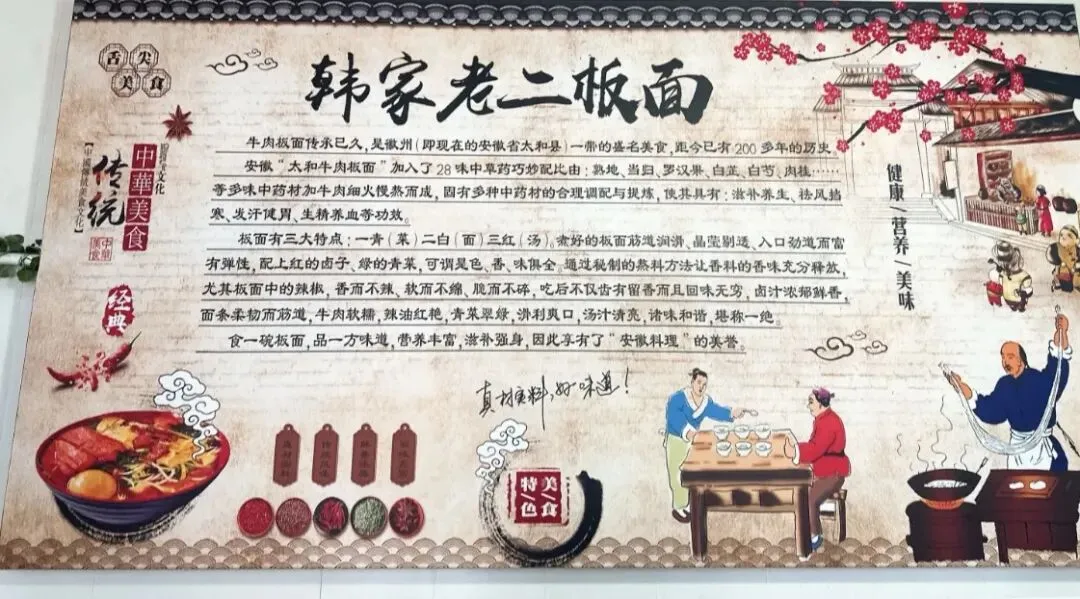 舌尖
美食
韩家老二板面
牛肉板面传承已久,是徽州(即现在的安徽省太和县)一带的盛名美食,距今已有200多年的历史
安徽“太和牛肉板面”加入了28味中草药巧妙配比由:熟地、当归、罗汉果、白芷、白芍、肉桂……
等多味中药材加牛肉细火慢熬而成,固有多种中药材的合理调配与提炼,使其具有:滋补养生、祛风挡
寒、发汗健胃、生精养血等功效。
板面有三大特点:一青(菜)二白(面)三红(汤)。煮好的板面筋道润滑、晶莹剔透、入口劲道而富
有弹性,配上红的卤子、绿的青菜,可谓是色、香、味俱全。通过秘制的熬料方法让香料的香味充分释放,
尤其板面中的辣椒,香而不辣、软而不绵、脆而不碎,吃后不仅齿有留香而且回味无穷,卤汁浓郁鲜香,
面条柔韧而筋道,牛肉软糯,辣油红艳,青菜翠绿,滑利爽口,汤汁清亮,诸味和谐,堪称一绝。
食一碗板面,品一方味道,营养丰富,滋补强身,因此享有了“安徽料理”的美誉。
真材实料,好味道!
中華美食
传统
中華美食
经典
健康/营养/美味
美/食
特/色